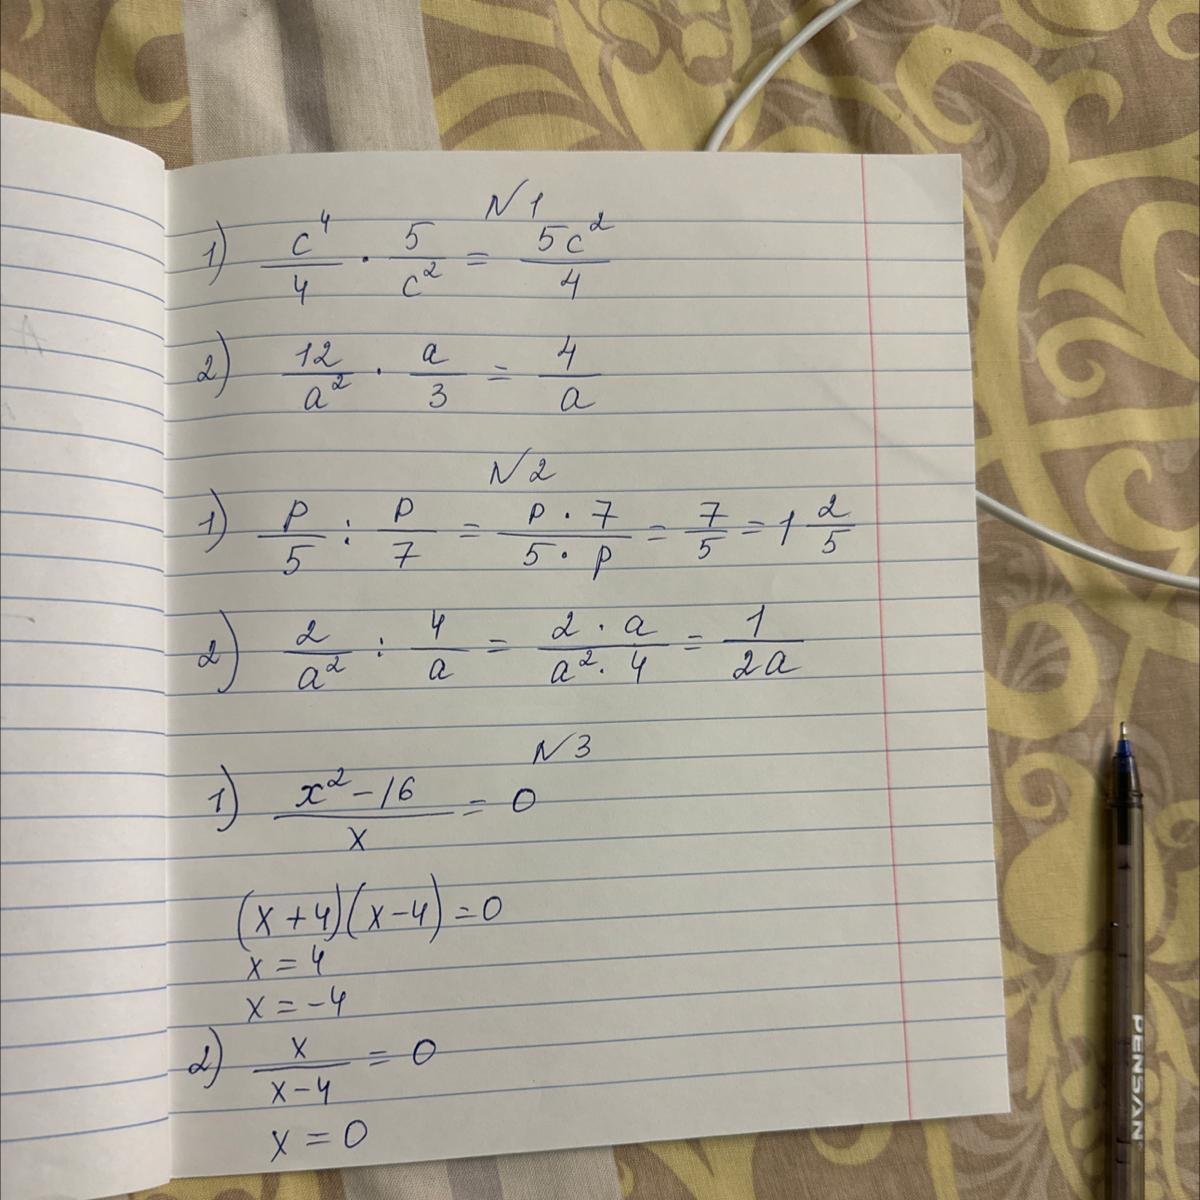 N1
1) c^4/4 · 5/c^2 = 5c^2/4
2) 12/a^2 · a/3 = 4/a
N2
1) p/5 : p/7 = p · 7/5 · p = 7/5 = 1 2/5
2) 2/a^2 : 4/a = 2 · a/a^2 · 4 = 1/2a
N3
1) x^2-16/x = 0
(x+4)(x-4)=0
x = 4
x = -4
2) x/x-4 = 0
x = 0
PENSAN